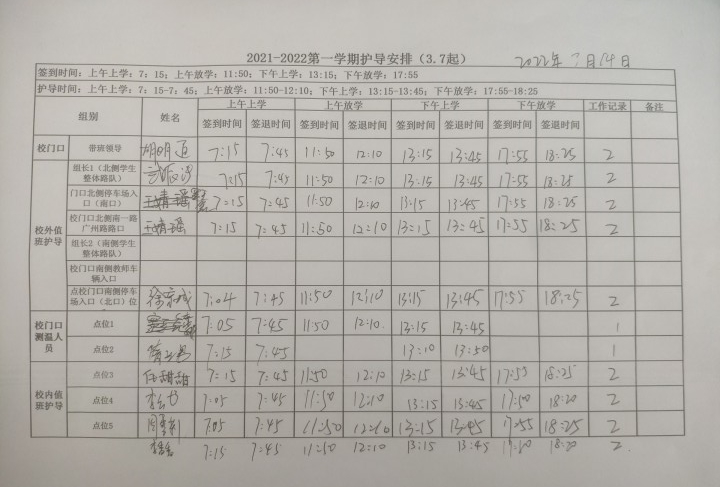 2021-2022第一学期护导安排（3.7起） 2022年3月14日
签到时间：上午上学：7：15；上午放学：11:50；下午上学：13:15；下午放学：17:55
护导时间：上午上学：7：15-7：45；上午放学：11:50-12:10；下午上学：13:15-13:45；下午放学：17:55-18:25
组别 姓名 上午上学 上午放学 下午上学 下午放学 工作记录 备注
签到时间 签退时间 签到时间 签退时间 签到时间 签退时间 签到时间 签退时间
校门口 带班领导 胡明道 7:15 7:45 11:50 12:10 13:15 13:45 17:55 18:25 2
校外值班护导
组长1（北侧学生整体路队） 7:15 7:45 11:50 12:10 13:15 13:45 17:55 18:25 2
门口北侧停车场入口（南口） 7:15 7:45 11:50 12:10 13:15 13:45 17:55 18:25 2
校门口北侧南一路广州路路口 王婧瑶 7:15 7:45 11:50 12:10 13:15 13:45 17:55 18:25 2
组长2（南侧学生整体路队）
校门口南侧教师车辆入口
点校门口南侧停车场入口（北口）位 7:04 7:45 11:50 12:10 13:15 13:45 17:55 18:25 2
校门口测温人员
点位1 7:05 7:45 11:50 12:10 13:15 13:45 1
点位2 7:15 7:45 13:10 13:50 1
校内值班护导
点位3 任甜甜 7:15 7:45 11:50 12:10 13:15 13:45 17:55 18:25 2
点位4 7:05 7:45 11:50 12:10 13:15 13:45 17:50 18:20 2
点位5 7:05 7:45 11:50 12:10 13:15 13:45 17:55 18:25 2
7:15 7:45 11:50 12:10 13:15 13:45 18:20 2